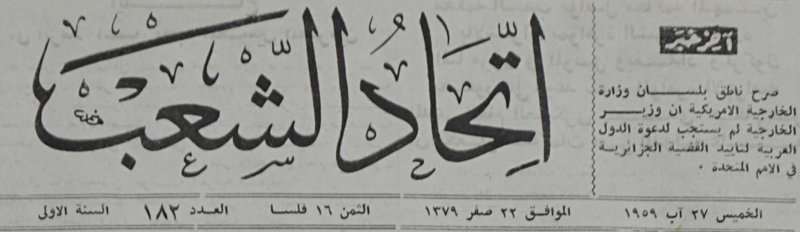 اتحاد الشعب
آخر خبر
صرح ناطق بلسان وزارة
الخارجية الامريكية ان وزير
الخارجية لم يستجب لدعوة الدول
العربية لتاييد القضية الجزائرية
في الامم المتحدة .
الخميس ٢٧ آب ١٩٥٩ الموافق ٢٢ صفر ١٣٧٩ الثمن ١٦ فلسا العدد ١٨٢ السنة الاولى